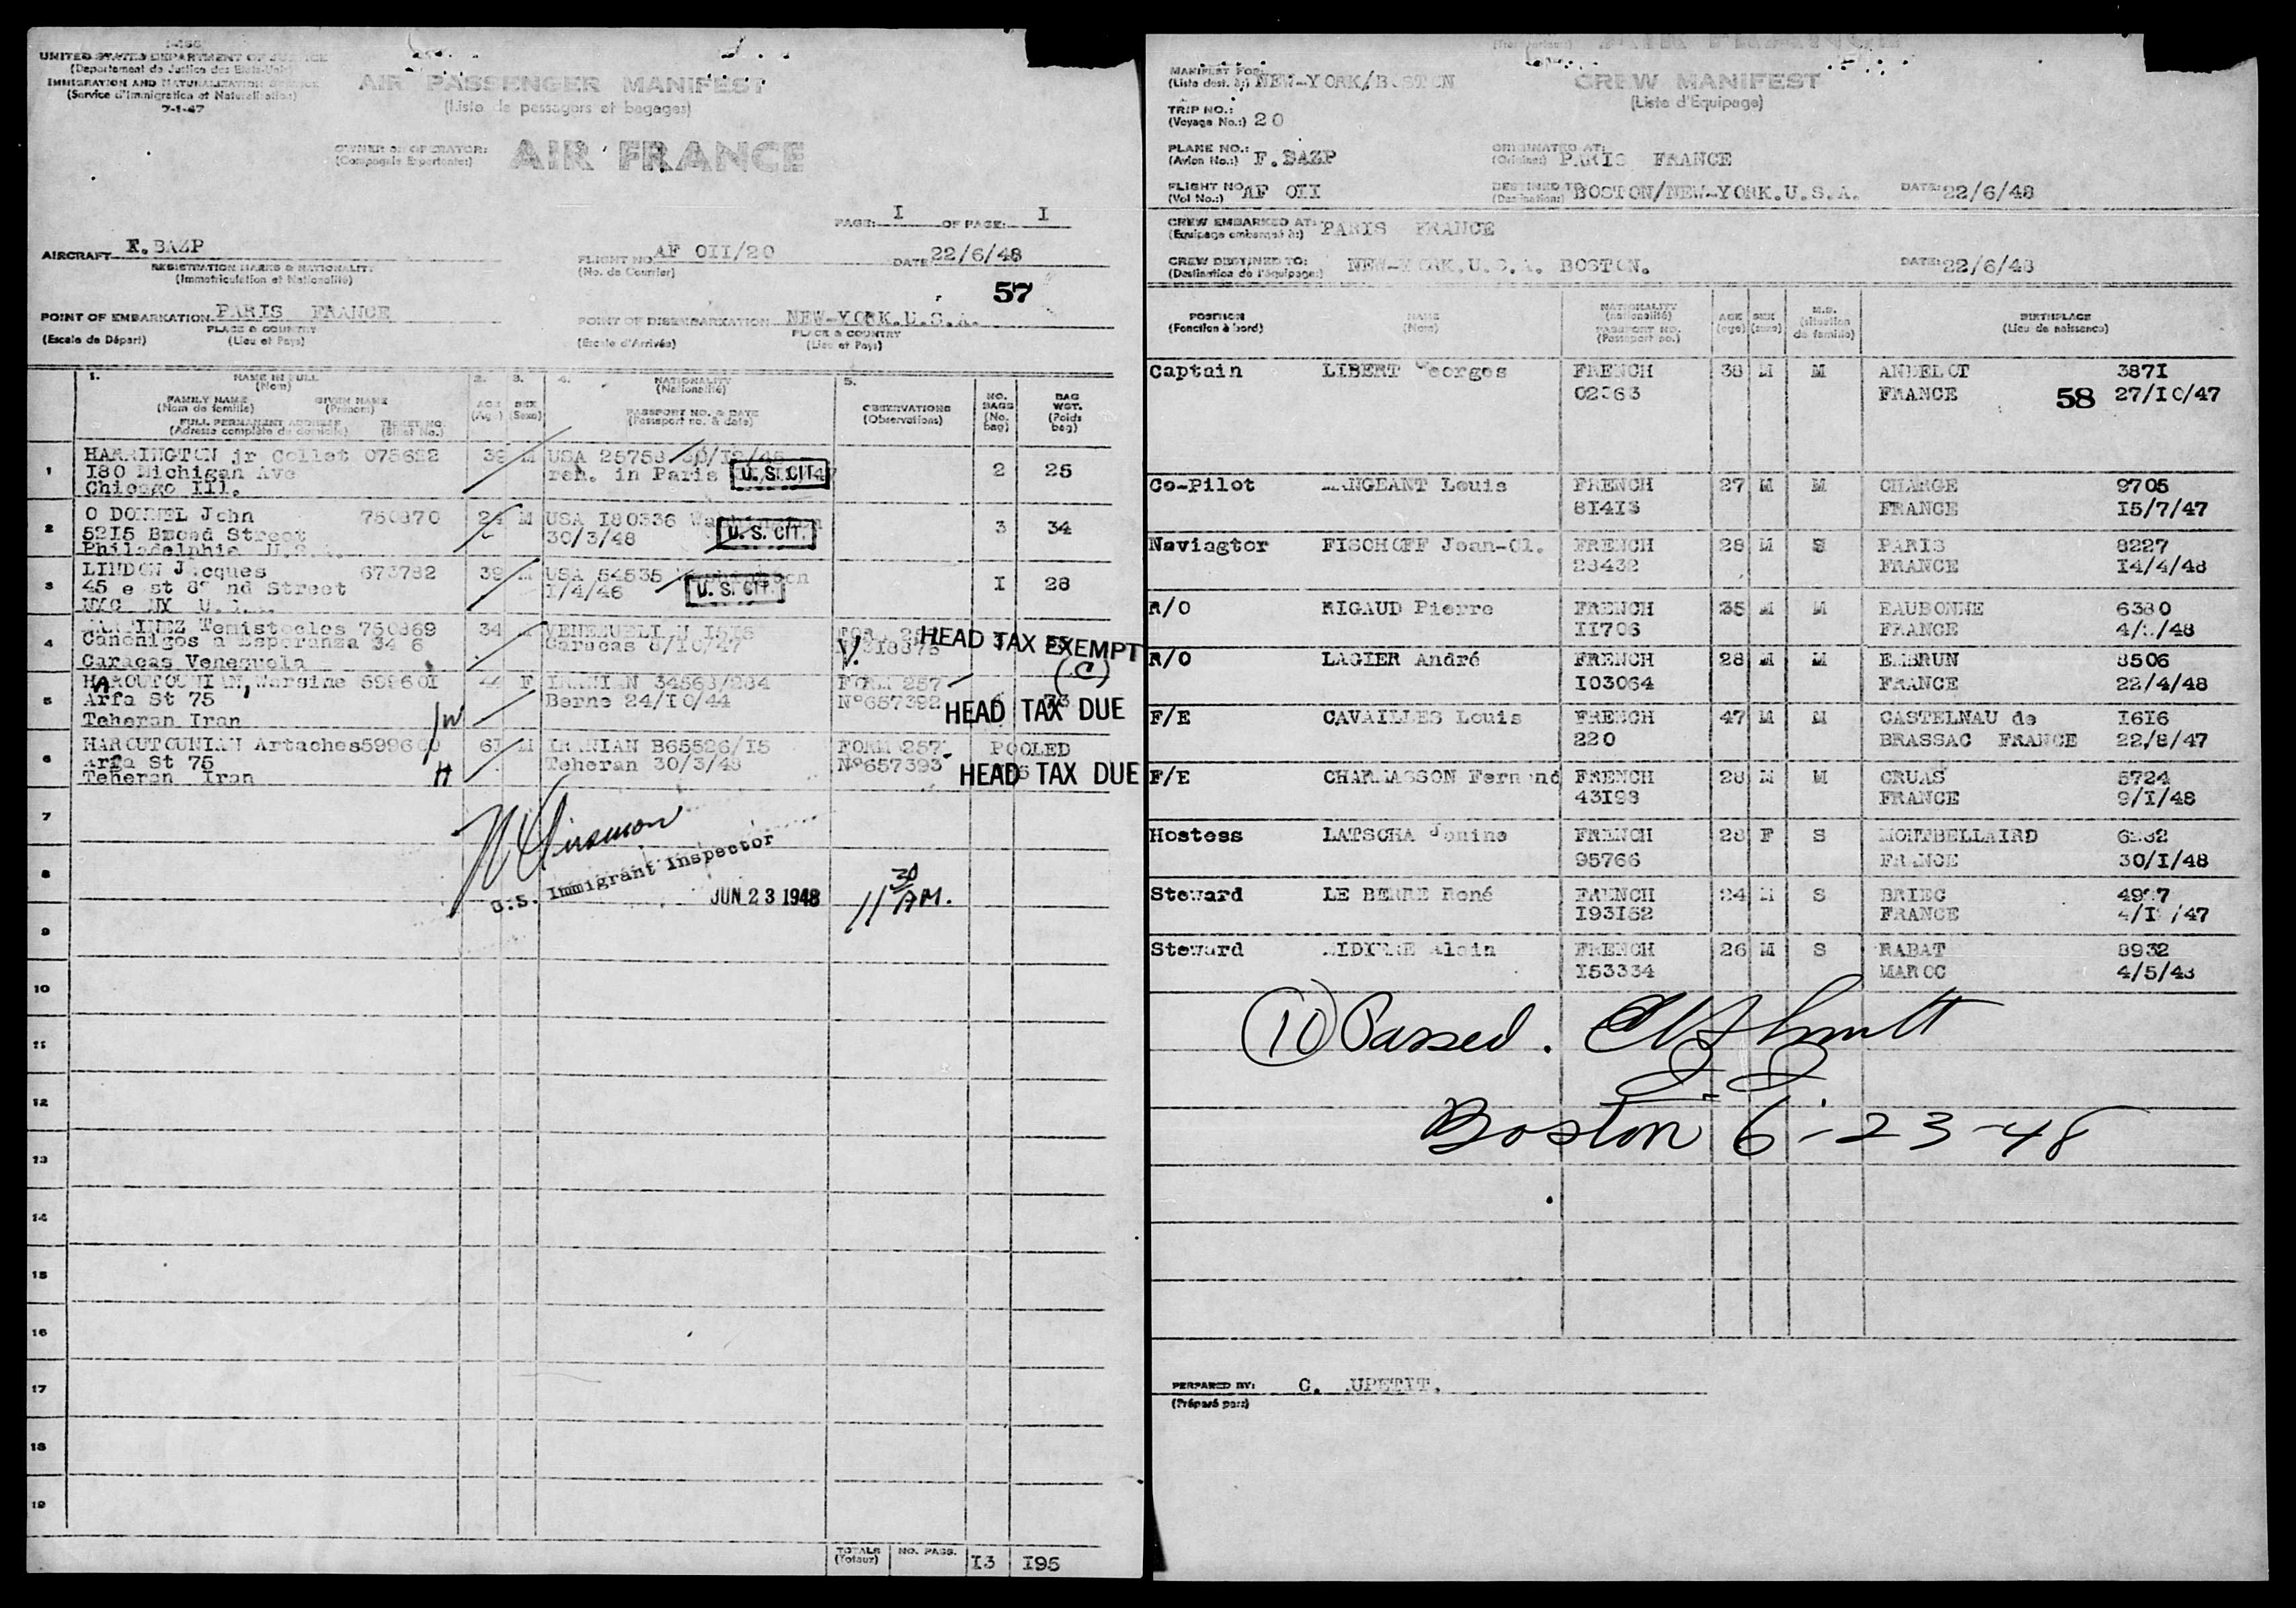 I-466
UNITED STATES DEPARTMENT OF JUSTICE
(Departement de Justice des Etats-Unis)
IMMIGRATION AND NATURALIZATION SERVICE
(Service d'Immigration et Naturalisation)
7-1-47
AIR PASSENGER MANIFEST
(Liste de passagers et bagages)
OWNER OR OPERATOR: AIR FRANCE
(Compagnie Exportanter)
PAGE: I OF PAGE: I
AIRCRAFT F.BAZP FLIGHT NO. AF OII/20 DATE 22/6/48
REGISTRATION MARKS & NATIONALITY (No. de Courrier)
(Immatriculation et Nationalité)
57
POINT OF EMBARKATION PARIS FRANCE POINT OF DISEMBARKATION NEW-YORK.U.S.A.
PLACE & COUNTRY PLACE & COUNTRY
(Escale de Départ) (Lieu et Pays) (Escale d'Arrivée) (Lieu et Pays)
1. NAME IN FULL 2. 3. 4. NATIONALITY 5.
(Nom) (Nationalité)
FAMILY NAME GIVEN NAME AGE SEX PASSPORT NO. & DATE OBSERVATIONS NO. BAGS BAG WGT.
(Nom de famille) (Prénom) (Age) (Sexe) (Passeport no. & date) (Observations) (No. bag) (Poids bag)
FULL PERMANENT ADDRESS TICKET NO.
(Adresse complète de domicile) (Billet No.)
1 HARRINGTON jr Collet 075622 39 M USA 25758
180 Michigan Ave ren. in Paris U. S. CIT. 2 25
Chicago Ill.
2 O DONNEL John 750870 24 M USA I80336 Washington
5215 Broad Street 30/3/48 U. S. CIT. 3 34
Philadelphia U.S.A.
3 LINDON Jacques 673782 39 M USA 54535 Washington
45 east 82 nd Street I/4/46 U. S. CIT. I 28
NYC NY U.S.A.
4 Temistocles 750869 34 M
Canonigos a Esperanza 34 6 Caracas 8/10/47 V. HEAD TAX EXEMPT
Caracas Venezuela (C)
5 HAROUTOUNIAN, Warsine 599601 F IRANIAN 34563/284 FORM 257
Arfa St 75 Berne 24/10/44 N°657392 HEAD TAX DUE
Teheran Iran W
6 HAROUTOUNIAN Artaches 61 M IRANIAN B65526/15 FORM 257 POOLED
Arfa St 75 Teheran 30/3/48 N°657393 HEAD TAX DUE
Teheran Iran H
7
U.S. Immigrant Inspector
8
JUN 23 1948 11 30 AM.
9
10
11
12
13
14
15
16
17
18
19
TOTALS NO. PASS. I3 I95
(Totaux)
AIR FRANCE
MANIFEST FOR: NEW-YORK/BOSTON CREW MANIFEST
(Liste dest. à:) (Liste d'Equipage)
TRIP NO.:
(Voyage No.:) 20
PLANE NO.: F.BAZP ORIGINATED AT: PARIS FRANCE
(Avion No.:) (Origine:)
FLIGHT NO. AF OII DESTINED TO BOSTON/NEW-YORK.U.S.A. DATE: 22/6/48
(Vol No.:) (Destination:)
CREW EMBARKED AT: PARIS FRANCE
(Equipage embarqué à:)
CREW DESTINED TO: NEW-YORK.U.S.A. BOSTON. DATE: 22/6/48
(Destination de l'équipage:)
POSITION NAME NATIONALITY AGE SEX M.S. BIRTHPLACE
(Fonction à bord) (Nom) (nationalité) (age) (sexe) (situation de famille) (Lieu de naissance)
PASSPORT NO.
(Passeport no.)
Captain LIBERT Georges FRENCH 38 M M ANDELOT 387I
02363 FRANCE 58 27/10/47
Co-Pilot MANGEANT Louis FRENCH 27 M M CHARGE 9705
81413 FRANCE 15/7/47
Naviagtor FISCHOFF Jean-Cl. FRENCH 28 M S PARIS 8227
28432 FRANCE I4/4/48
R/O RIGAUD Pierre FRENCH 35 M M EAUBONNE 6380
II706 FRANCE
R/O LAGIER André FRENCH 28 M M EMBRUN 8506
I03064 FRANCE 22/4/48
F/E CAVAILLES Louis FRENCH 47 M M CASTELNAU de I6I6
220 BRASSAC FRANCE 22/8/47
F/E CHARMASSON Fernand FRENCH 28 M M CRUAS 5724
43I98 FRANCE 9/I/48
Hostess LATSCHA Janine FRENCH 28 F S MONTBELLAIRD
95766 FRANCE 30/I/48
Steward LE BERRE René FRENCH 24 M S BRIEC
I93I52 FRANCE
Steward Alain FRENCH 26 M S RABAT 8932
I53334 MAROC 4/5/48
10 Passed.
Boston 6-23-48
PERPARED BY: C.
(Préparé par:)